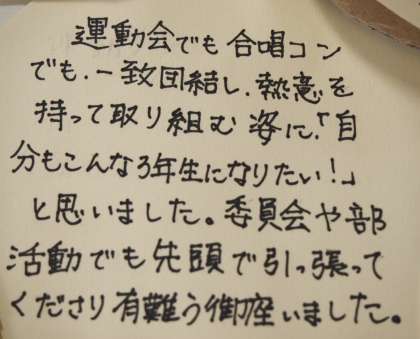 運動会でも合唱コン
でも、一致団結し、熱意を
持って取り組む姿に、「自
分もこんな3年生になりたい!」
と思いました。委員会や部
活動でも先頭で引っ張って
くださり有難う御座いました。